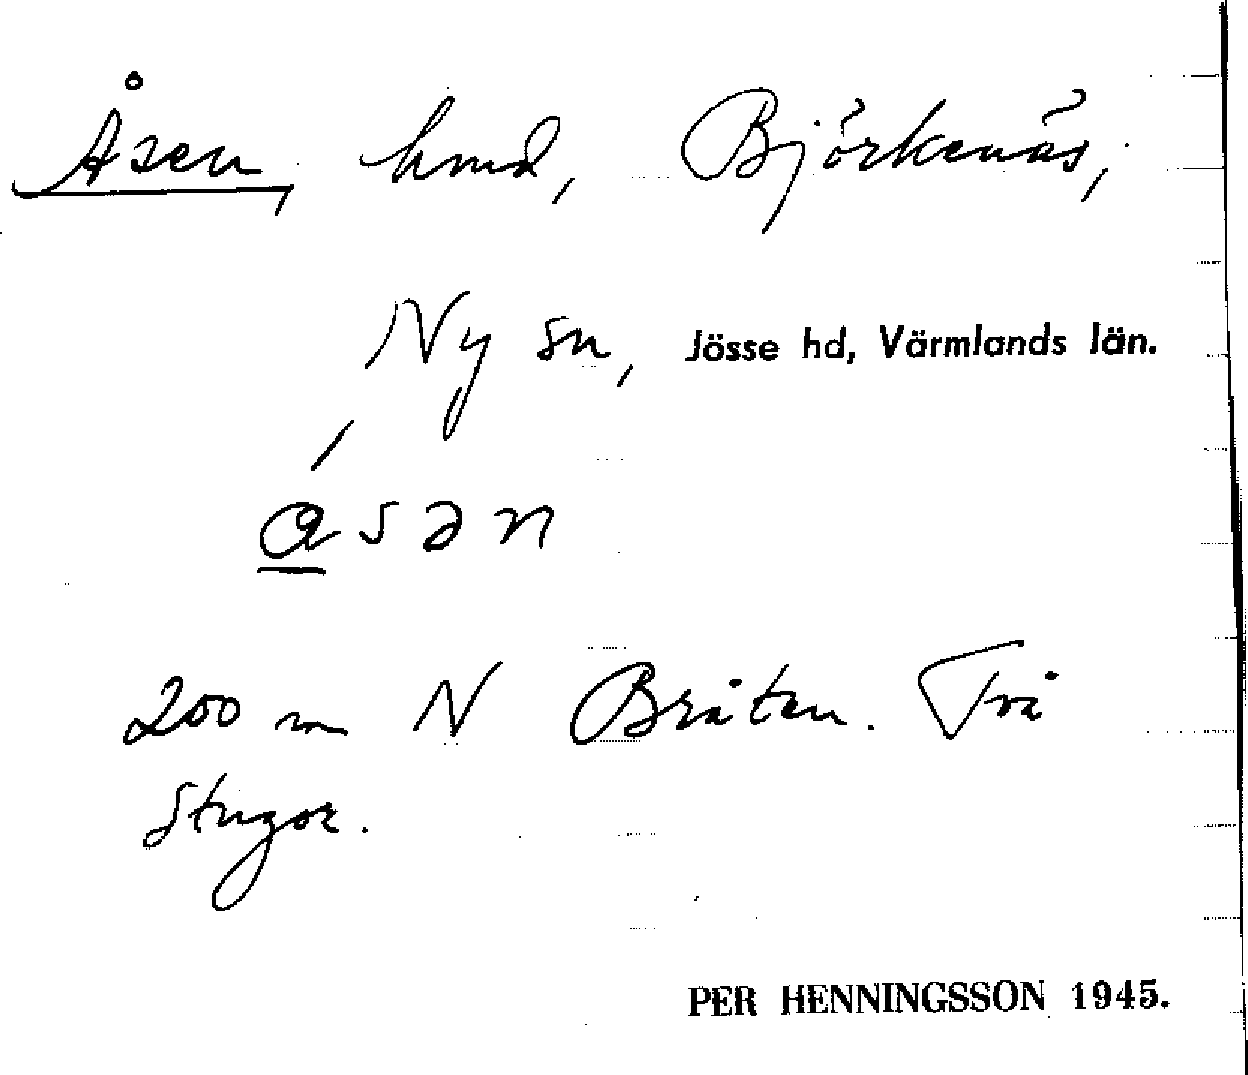 Åsen, hmd, Björkenäs,
Ny sn, Jösse hd, Värmlands län.
200 m N Bråten. Två
stugor.
PER HENNINGSSON 1945.